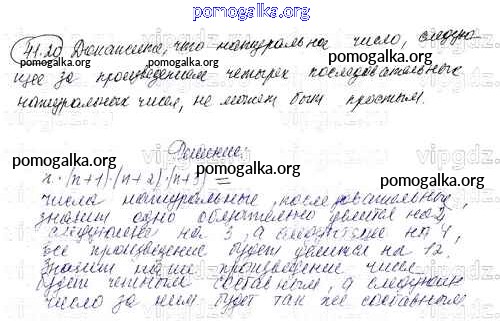 pomogalka.org
41.20 Докажите, что натуральное число, следую-
щее за произведением четырех последовательных
натуральных чисел, не может быть простым.
Решение:
n · (n+1) · (n+2) · (n+3) =
числа натуральные, последовательные,
значит одно обязательно делится на 2,
следующее на 3, а следующее на 4,
все произведение будет делится на 12.
Значит наше произведение чисел
будет четным составным, а следующее
число за ним будет так же составным